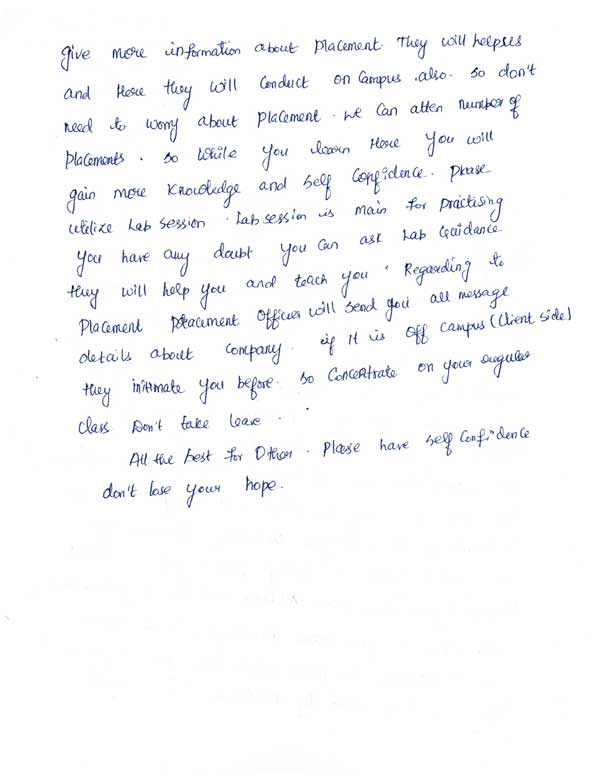 give more information about placement. They will helps us
and Here they will conduct on campus also. so don't
need to worry about placement. we can atten number of
placements. so while you learn Here you will
gain more knowledge and self confidence. please
utilize Lab session. Lab session is main for practising
you have any doubt you can ask Lab Guidance
they will help you and teach you. Regarding to
placement placement officer will send you all message
details about company. if It is off campus (client side)
they intimate you before. so concentrate on your regular
class. Don't take leave.
All the best for other. Please have self confidence
don't lose your hope.